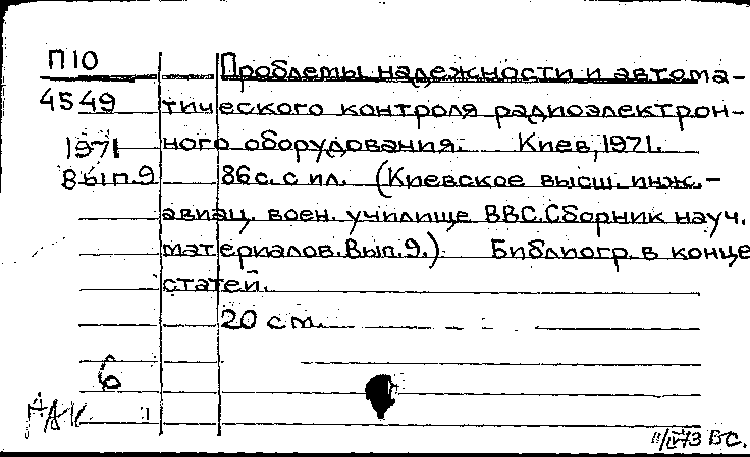 П10
Проблемы надежности и автома-
4549 тического контроля радиоэлектрон-
1971 ного оборудования. Киев, 1971.
Вып.9 86 с. с ил. (Киевское высш. инж.-
авиац. воен. училище ВВС. Сборник науч.
материалов. Вып. 9.) Библиогр. в конце
статей.
20 см.
6
ВС.